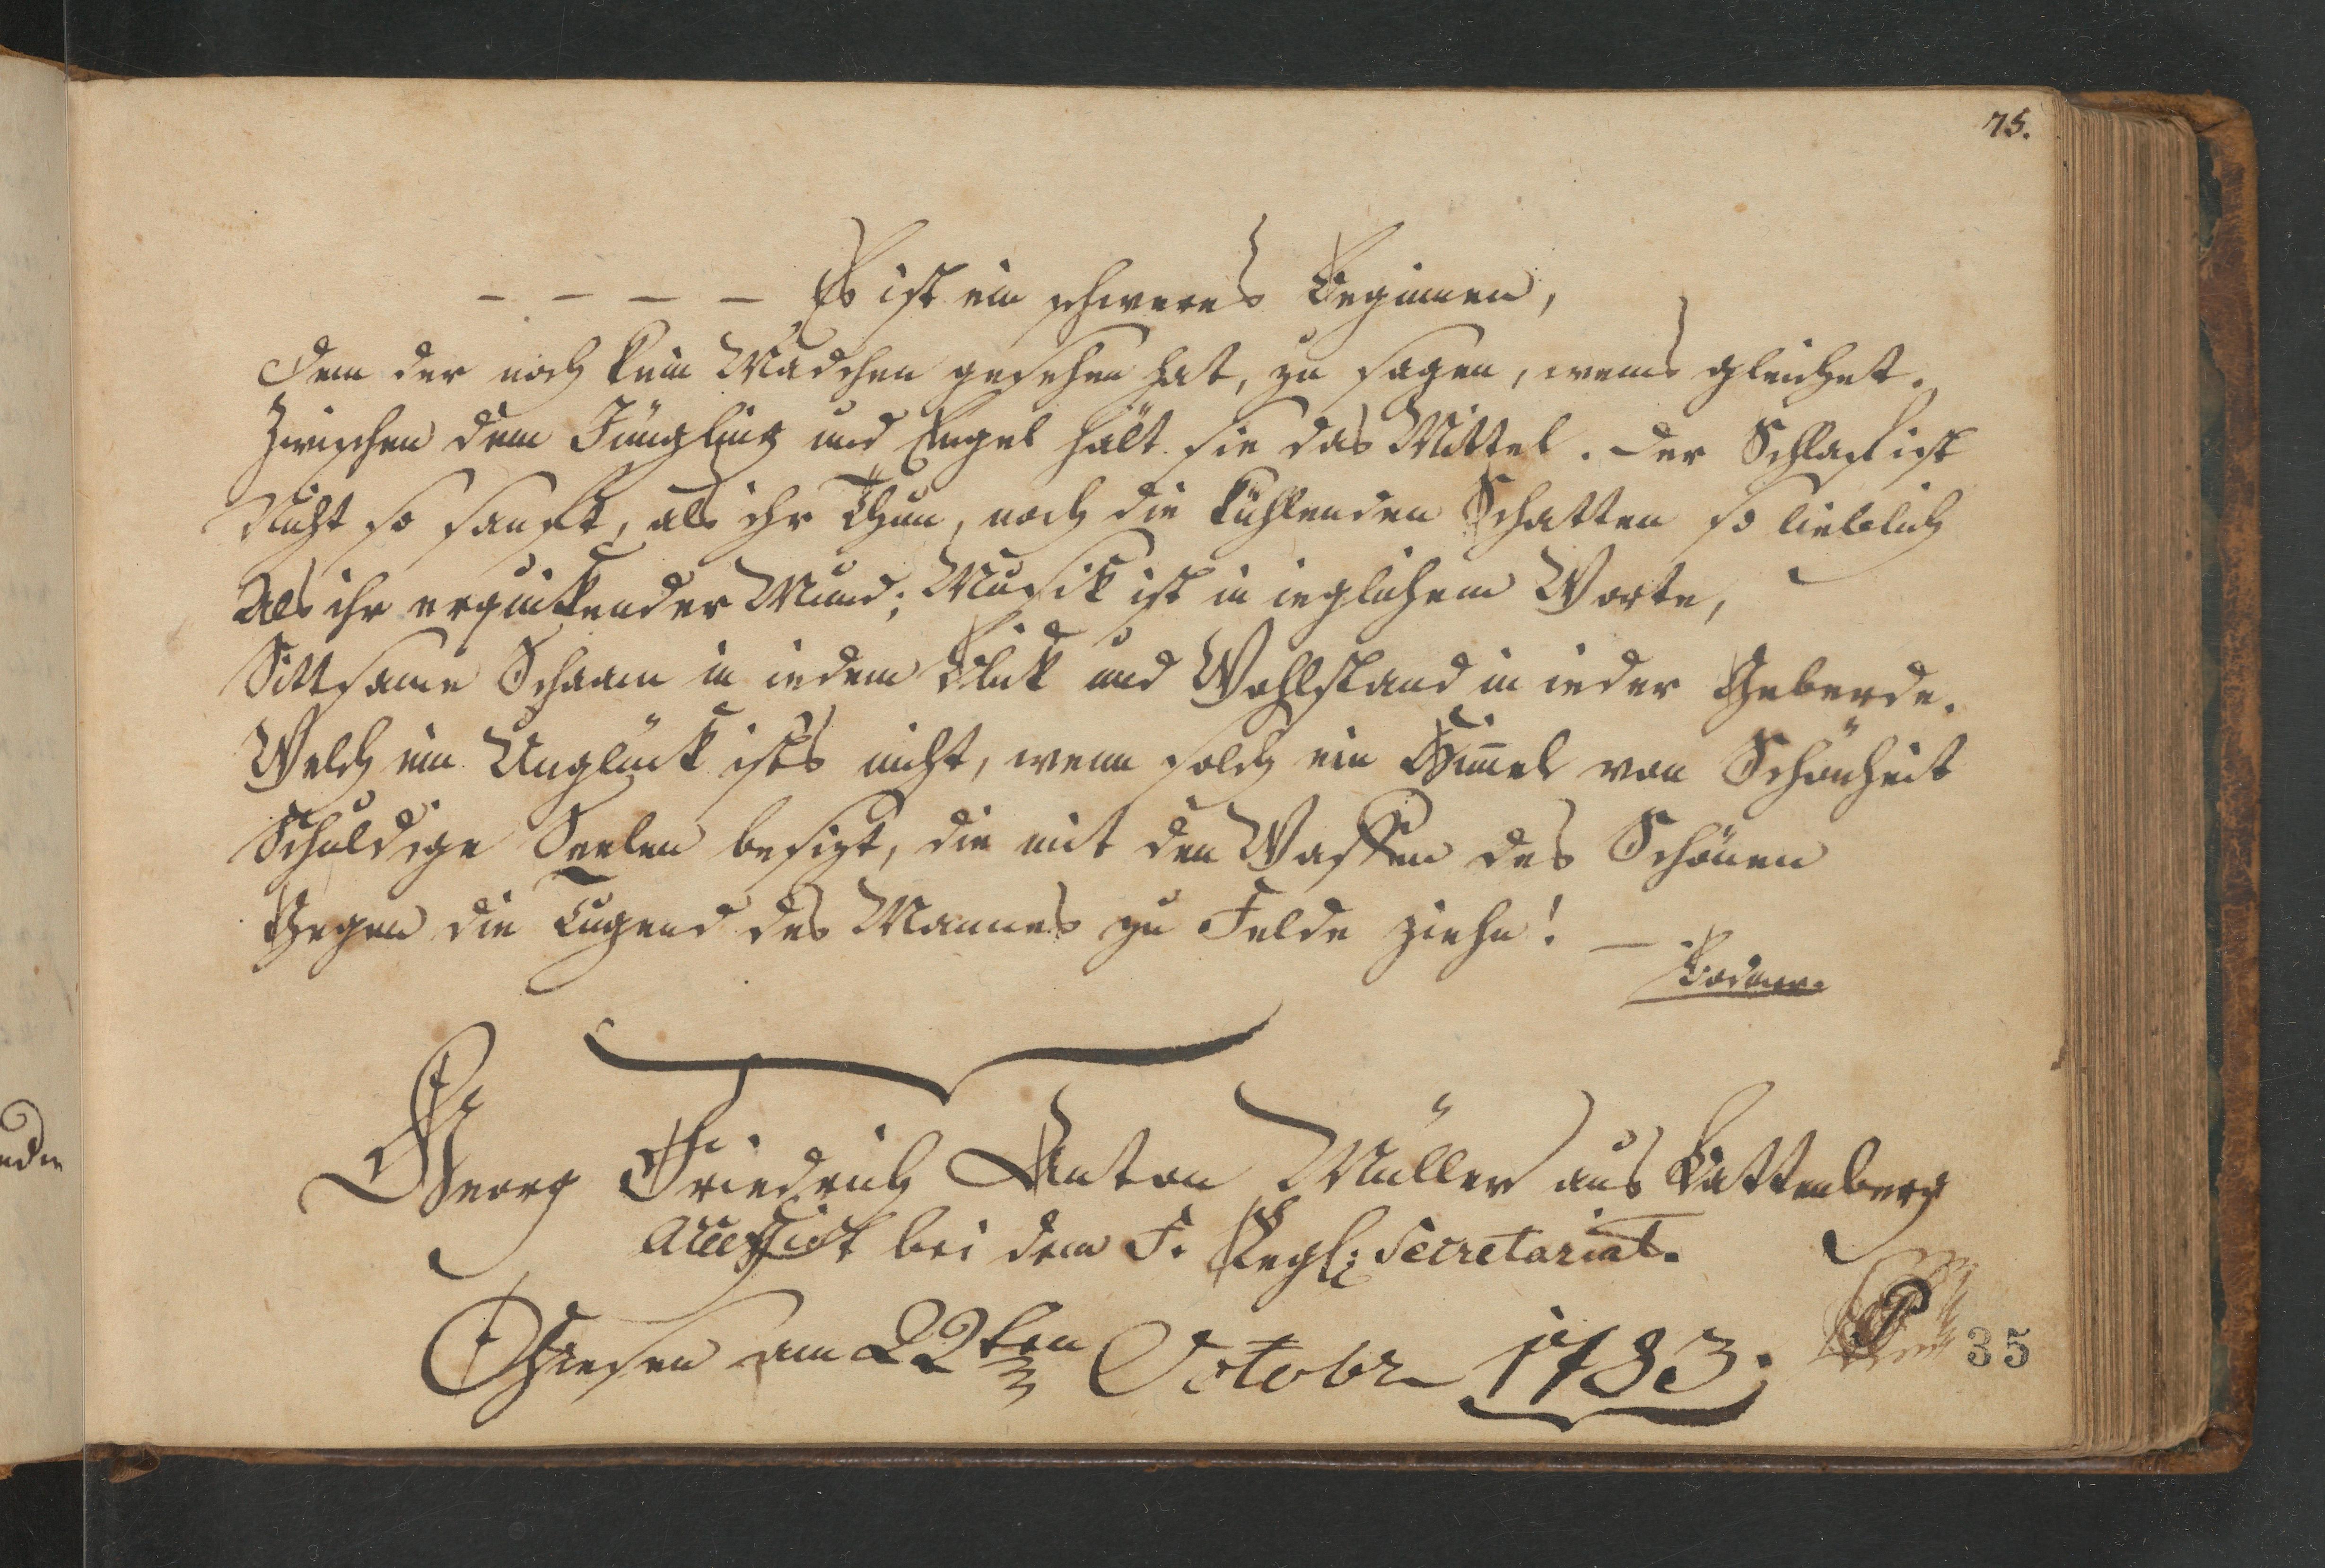 75.
– – – – Es ist ein schweres Beginnen,
Dem der noch kein Mädchen gesehen hat, zu sagen, wems gleichet.
Zwischen dem Jüngling und Engel hält sie das Mittel. Der Schlaf ist
Nicht so sanft, als ihr Thun, noch die kühlenden Schatten so lieblich
Als ihr erquickender Mund; Musik ist in ieglichem Worte,
Sittsame Schaam in iedem Blick und Wohlstand in ieder Geberde.
Welch ein Unglück ists nicht, wenn solch ein Him̄el von Schönheit
Schuldige Seelen besizt, die mit den Waffen des Schönen
Gegen die Tugend des Mannes zu Felde ziehn! –
Bodmer.
Georg Friedrich Anton Müller aus Battenberg
Accessist bei dem F. Regs: Secretariat.
Giesen am 22ten Octobr 1783.
35